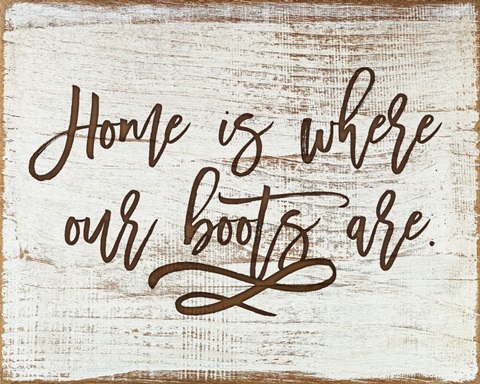 Home is where
our boots are.